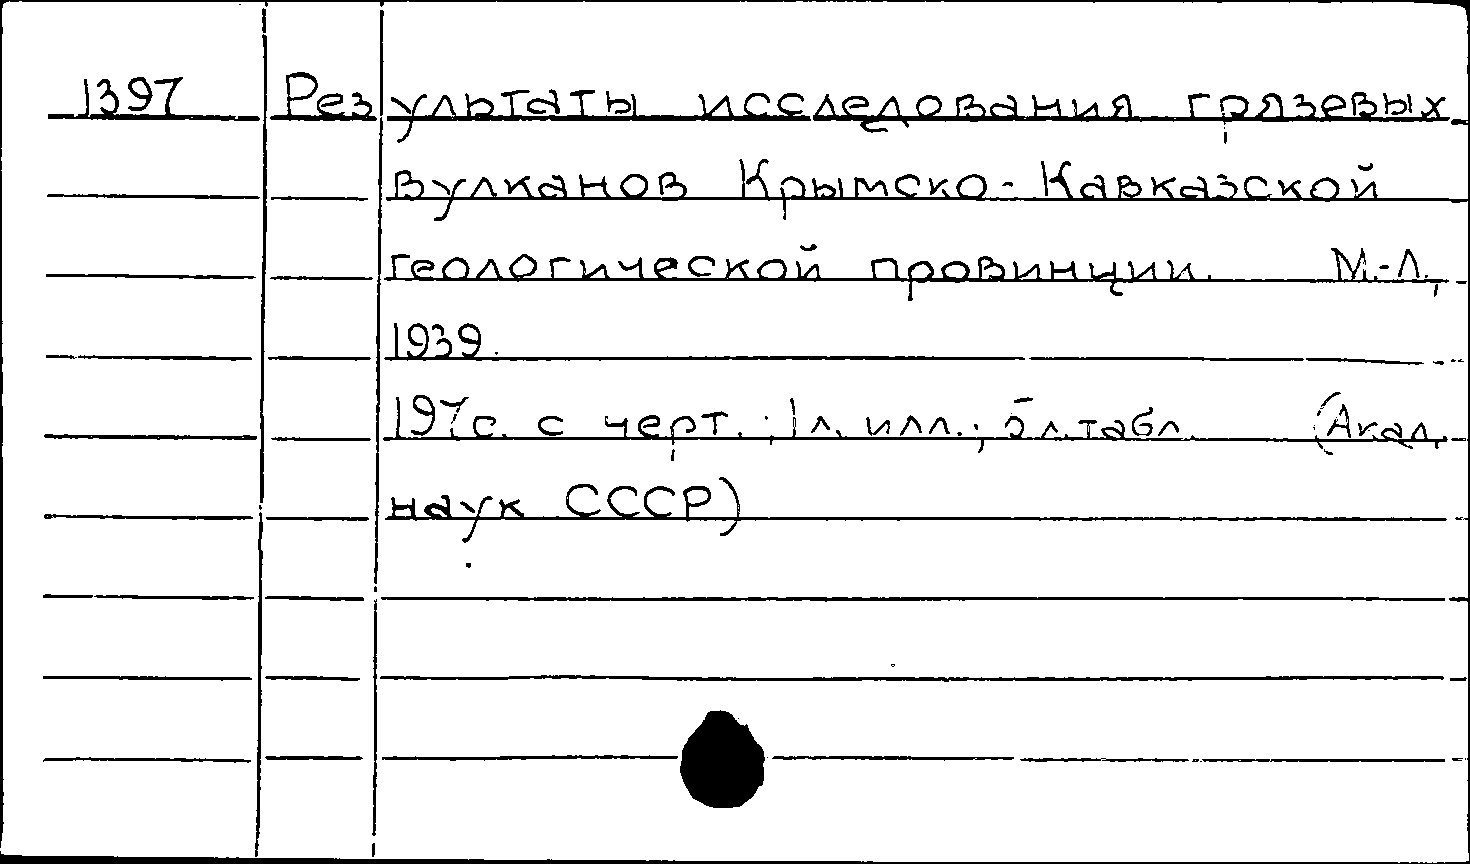 1397 Результаты исследования грязевых
вулканов Крымско-Кавказской
геологической провинции. М.-Л.,
1939.
197с. с черт.; 1 л. илл.; 5 л. табл. (Акад.
наук СССР)